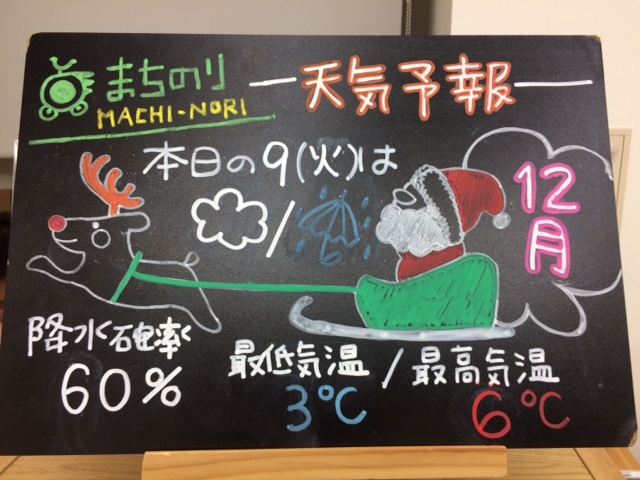 まちのり
MACHI-NORI
天気予報
12月
本日の9(火)は
/
降水確率
60%
最低気温 / 最高気温
3℃ 6℃